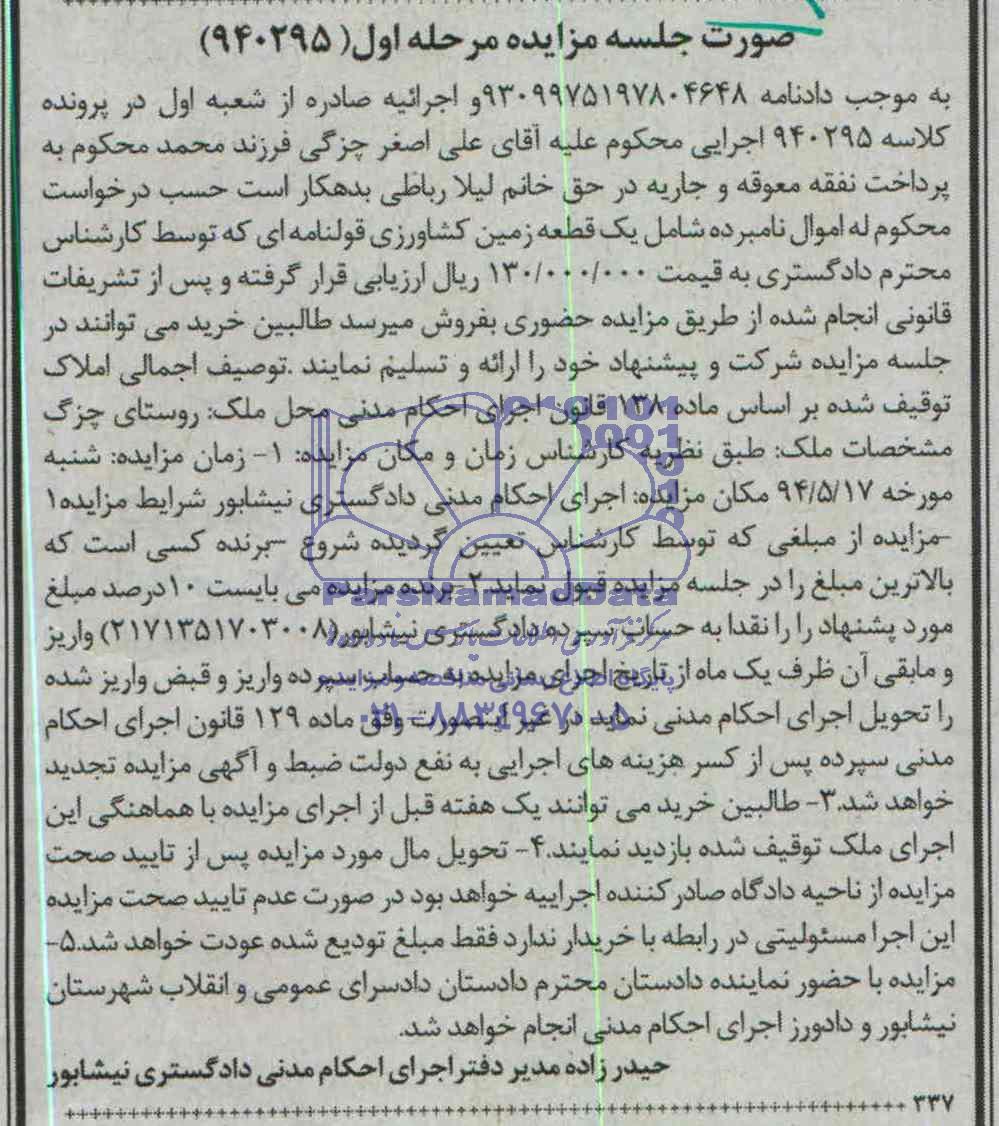 صورت جلسه مزایده مرحله اول( ۹۴۰۲۹۵)
به موجب دادنامه ۹۳۰۹۹۷۵۱۹۷۸۰۴۶۴۸و اجرائیه صادره از شعبه اول در پرونده
کلاسه ۹۴۰۲۹۵ اجرایی محکوم علیه آقای علی اصغر چزگی فرزند محمد محکوم به
پرداخت نفقه معوقه و جاریه در حق خانم لیلا رباطی بدهکار است حسب درخواست
محکوم له اموال نامبرده شامل یک قطعه زمین کشاورزی قولنامه ای که توسط کارشناس
محترم دادگستری به قیمت ۱۳۰/۰۰۰/۰۰۰ ریال ارزیابی قرار گرفته و پس از تشریفات
قانونی انجام شده از طریق مزایده حضوری بفروش میرسد طالبین خرید می توانند در
جلسه مزایده شرکت و پیشنهاد خود را ارائه و تسلیم نمایند .توصیف اجمالی املاک
توقیف شده بر اساس ماده ۱۳۸ قانون اجرای احکام مدنی محل ملک: روستای چزگ
مشخصات ملک: طبق نظریه کارشناس زمان و مکان مزایده: ۱- زمان مزایده: شنبه
مورخه ۹۴/۵/۱۷ مکان مزایده: اجرای احکام مدنی دادگستری نیشابور شرایط مزایده۱
-مزایده از مبلغی که توسط کارشناس تعیین گردیده شروع -برنده کسی است که
بالاترین مبلغ را در جلسه مزایده قبول نماید.۲-برنده مزایده می بایست ۱۰درصد مبلغ
ParsNamadData
مورد پشنهاد را را نقدا به حساب سپرده دادگستری نیشابور(۲۱۷۱۳۵۱۷۰۳۰۰۸) واریز
و مابقی آن ظرف یک ماه از تاریخ اجرای مزایده به حساب سپرده واریز و قبض واریز شده
را تحویل اجرای احکام مدنی نماید در غیر اینصورت وفق ماده ۱۲۹ قانون اجرای احکام
۰۲۱-۸۸۳۴۹۶۷۰-۵
مدنی سپرده پس از کسر هزینه های اجرایی به نفع دولت ضبط و آگهی مزایده تجدید
خواهد شد.۳- طالبین خرید می توانند یک هفته قبل از اجرای مزایده با هماهنگی این
اجرای ملک توقیف شده بازدید نمایند.۴- تحویل مال مورد مزایده پس از تایید صحت
مزایده از ناحیه دادگاه صادر کننده اجراییه خواهد بود در صورت عدم تایید صحت مزایده
این اجرا مسئولیتی در رابطه با خریدار ندارد فقط مبلغ تودیع شده عودت خواهد شد.۵-
مزایده با حضور نماینده دادستان محترم دادستان دادسرای عمومی و انقلاب شهرستان
نیشابور و دادورز اجرای احکام مدنی انجام خواهد شد.
حیدر زاده مدیر دفتر اجرای احکام مدنی دادگستری نیشابور
۳۳۷